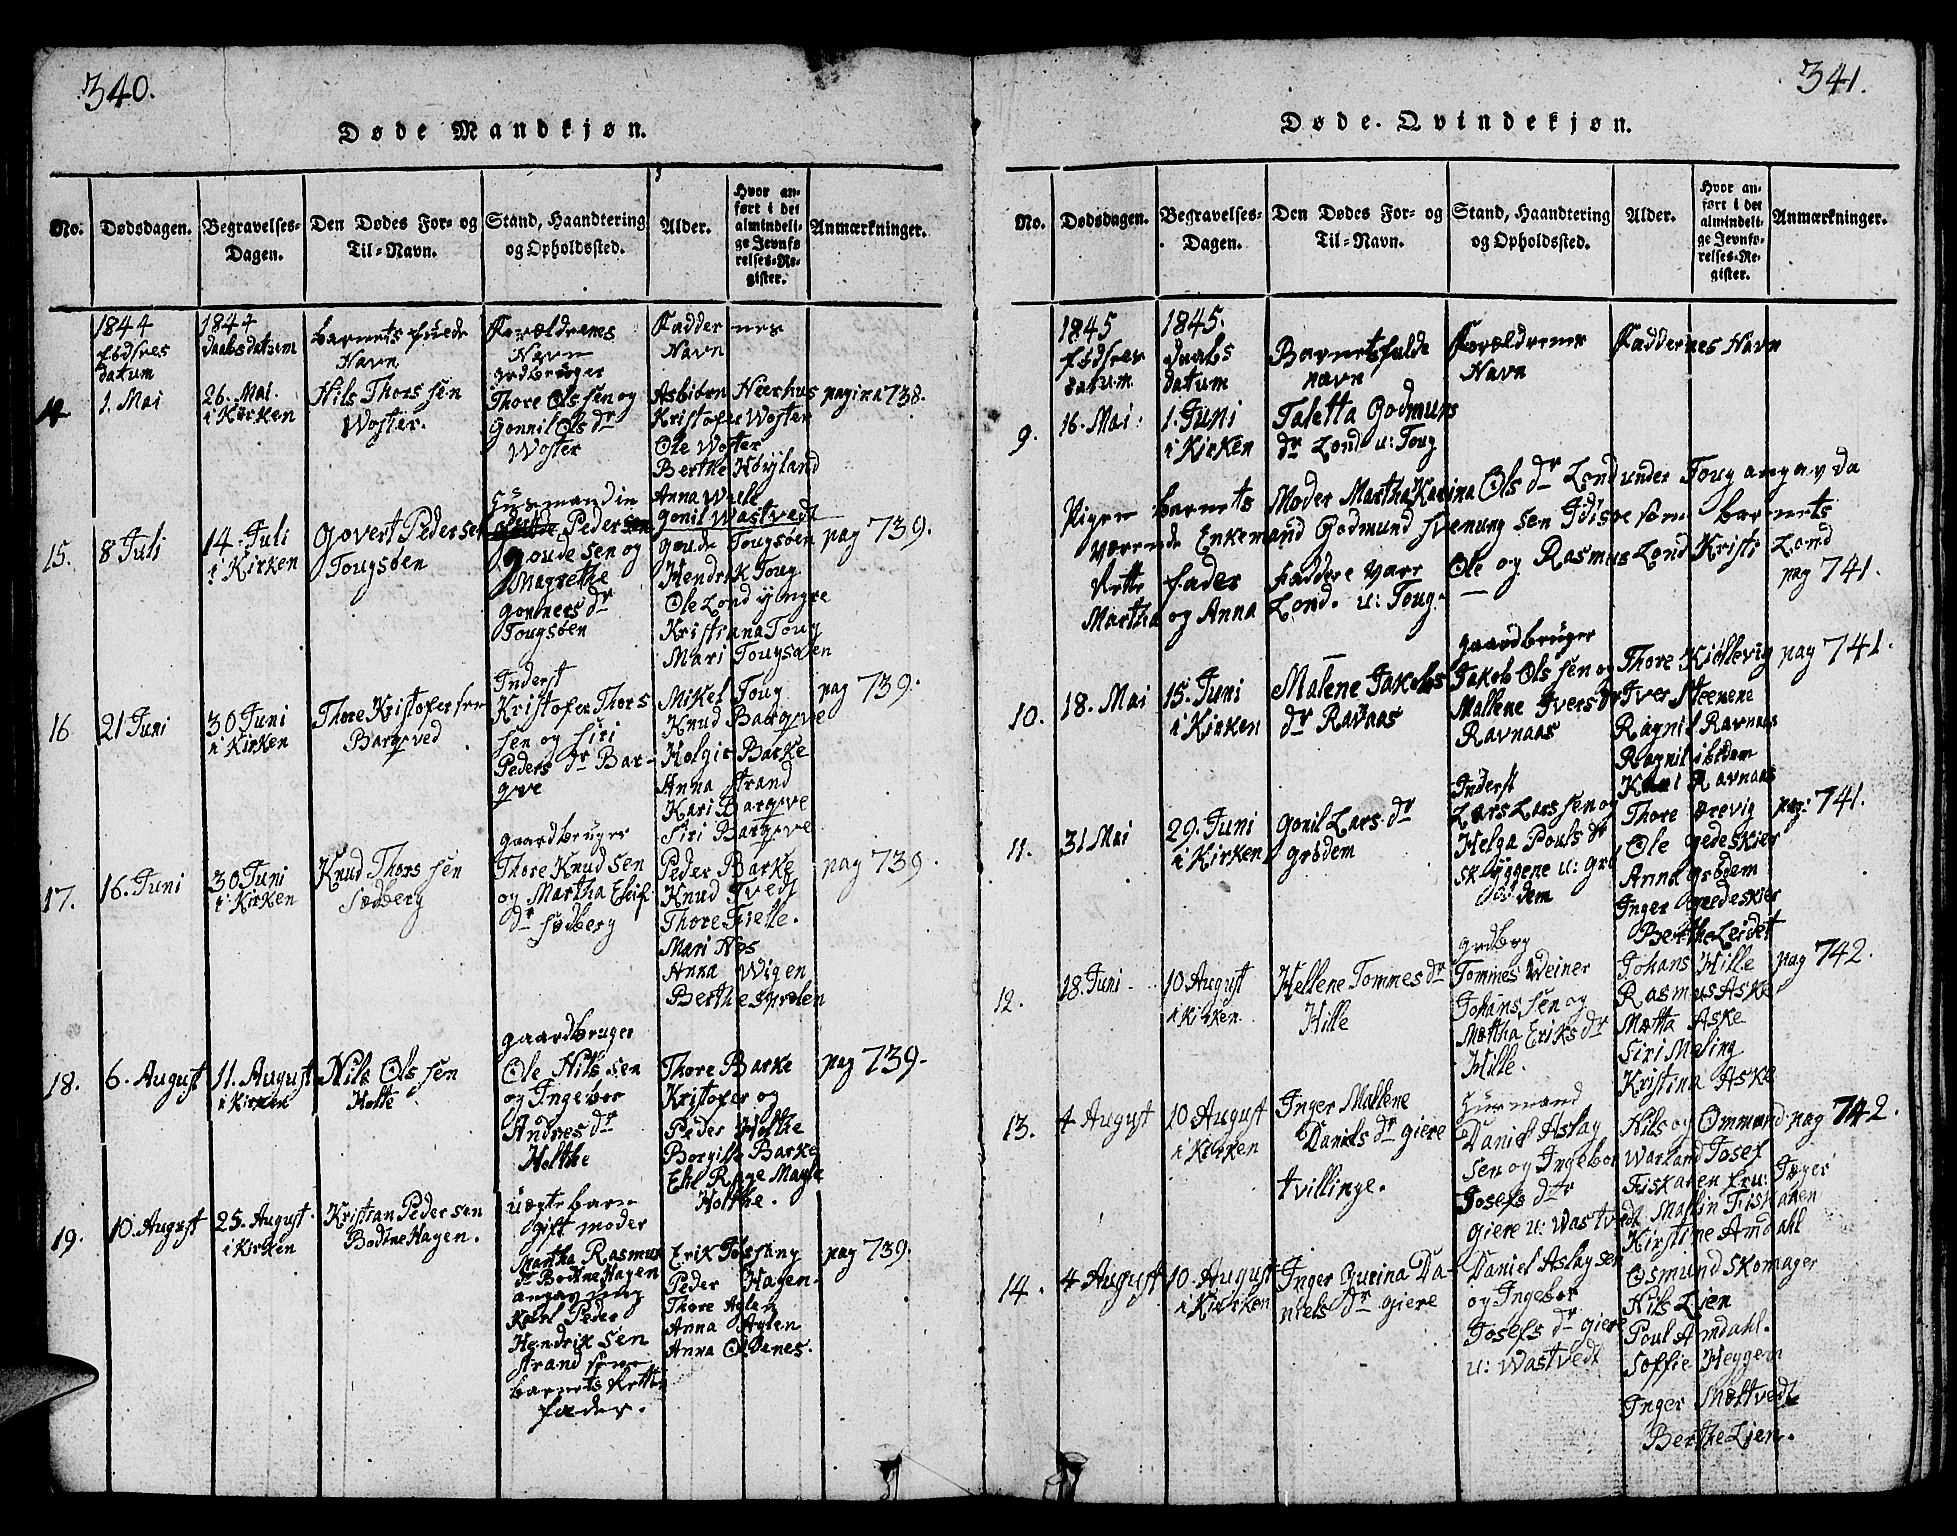 340.
Døde Mandkjøn.
No. Dødsdagen. Begravelses-Dagen. Den Dødes For- og Til-Navn. Stand, Haandtering og Opholdssted. Alder. Hvor anført i det almindelige Jevnførelses-Register. Anmærkninger.
1844 1844
fødsels datum daabsdatum barnets fulde Navn Forældrenes Navn Faddernes Navn
grdbruger
14. 1. Mai 26. Mai. i Kirken Nils Thors sen Woster.
Thore Ols sen og
Gonnil Ols dr
Woster
Asbiørn Neerhus pagina 738.
Kristofer Woster
Ole Woster
Berthe Høyland
Anna Well
Gonil Wastvedt
15. 8 Juli 14. Juli i Kirken Govert Peder sen Tougsøen
Husmand in
Peder sen
Goude sen og
Magrethe
dr
Tougsøen
Goude Tougsøen pag 739.
Hendrik Toug
Ole Lond yngre
Kristiana Toug
Mari Tougsøen
16 21 Juni 30 Juni i Kirken Thore Kristofer sen
Inderst
Kristofer Thors
sen og Siri
Peders dr Bar-
Mikel Toug pag 739.
Knud
Holgir Barke
Anna Strand
Kari
Siri
17. 16. Juni 30 Juni i Kirken Knud Thors sen Sødberg
gaardbruger
Thore Knud sen
og Martha Eleif
dr Sødberg
Peder Barke pag 739.
Knud Tvedt
Thore Fielle.
Mari Nes
Anna Wigen
Berthe
18. 6. August 11. August i Kirken Nils Ols sen Holte
gaardbruger
Ole Nils sen
og Ingebor
Andres dr
Holthe
Thore Barke pag 739.
Kristofer og
Peder Holthe
Borgilla Barke
Holthe.
19. 10. August 25. August. i Kirken Kristian Peder sen Bodine Hagen.
uægte barn
gift moder
Martha Rasmus
dr Bodine Hagen
angav
Karl Peder
Hendrik sen
Strand som
barnets Rette
fader.
Erik Fossang pag 739.
Peder Hagen.
Thore Aglen
Anna Aglen
Anna Odenes.
341.
Døde Qvindekjøn.
No. Dødsdagen. Begravelses-Dagen. Den Dødes For- og Til-Navn. Stand, Haandtering og Opholdssted. Alder. Hvor anført i det almindelige Jevnførelses-Register. Anmærkninger.
1845 1845.
fødsels datum daabs datum Barnets fulde navn Forældrenes Navn Faddernes Navn
9. 16. Mai 1. Juni i Kirken Taletta Godmuns dr Lond u: Toug
Pigen barnets Moder Martha Karina Ols dr Lond under Toug angav da
værende Enkemand Godmund Svenung sen Idisøe som barnets
Rette fader Faddere varr Ole og Rasmus Lond Kristi Lond
Martha og Anna Lond. u: Toug. pag 741.
10. 18. Mai 15. Juni i Kirken Malene Jakobs dr Ravnaas
gaardbruger
Jakob Ols sen og
Mallene Ivers dr
Ravnaas
Thore Kiøllevig pag 741.
Iver Steenene
Ragnil Ravnaas
Ragnil ibidem
Kari Ravnaas
11. 31 Mai 29. Juni i Kirken Gonil Lars dr Grødem
Inderst
Lars Lars sen og
Helga Pouls dr
Skyggene u: Grø
dem
Thore Ørevig pag: 741.
Ole Gedeskier
Anna Grødem
Inger Gedeskier
Berthe Leidet
12. 18. Juni 10 August i Kirken Hellene Tommes dr Hille
grdbrg
Tommes Weiner
Johans sen og
Mættha Eriks dr
Hille.
Johans Hille pag 742.
Rasmus Aske
Mætta Aske
Siri Meling
Kristina Aske
13. 4 August 10 August i Kirken Inger Mallene Daniels dr Giere
tvillinge.
Husmand
Daniel Aslag
sen og Ingebor
Josefs dtr
Giere u: Wastvedt
Nils og Ommund pag 742.
Warland Josef
Fiskaaen fru: Inger
Mallin Fiskaaen
Kirstine Amdahl
14. 4 August 10. August i Kirken Inger Gurina Daniels dr Giere
Daniel Aslag sen
og Ingebor
Josefs dr Giere
u: Wastvedt
Osmund Skomager
Nils Lien
Poul Amdahl.
Soffie Heggem
Inger Møltvedt
Berthe Lien.